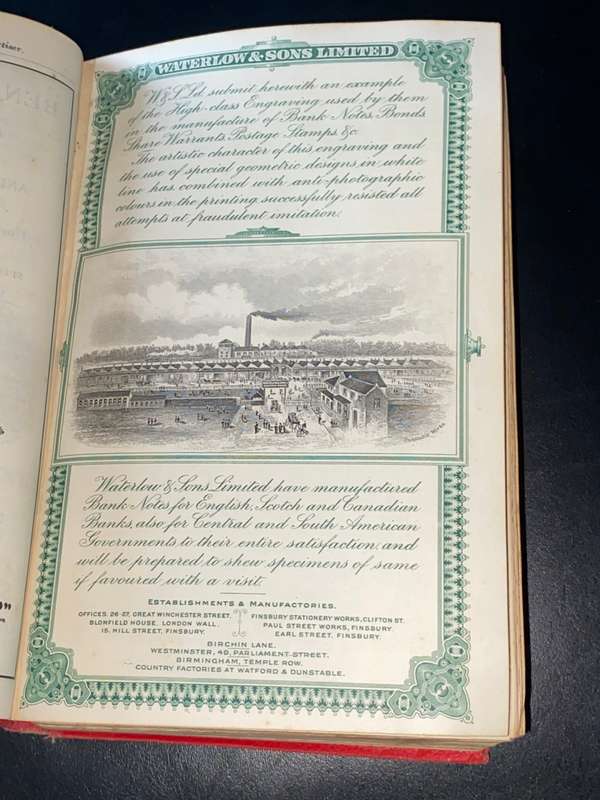 WATERLOW & SONS LIMITED
W.&S. Ld submit herewith an example
of the High-class Engraving used by them
in the manufacture of Bank Notes, Bonds,
Share Warrants, Postage Stamps, &c.
The artistic character of this engraving and
the use of special geometric designs, in white
line has combined with anti-photographic
colours in the printing, successfully resisted all
attempts at fraudulent imitation.
Waterlow & Sons Limited have manufactured
Bank Notes for English, Scotch and Canadian
Banks, also for Central and South American
Governments, to their entire satisfaction, and
will be prepared to shew specimens of same
if favoured with a visit.
ESTABLISHMENTS & MANUFACTORIES.
OFFICES. 26-27, GREAT WINCHESTER STREET.
BLOMFIELD HOUSE, LONDON WALL.
15, HILL STREET, FINSBURY.
FINSBURY STATIONERY WORKS, CLIFTON ST.
PAUL STREET WORKS, FINSBURY.
EARL STREET, FINSBURY.
BIRCHIN LANE.
WESTMINSTER, 49, PARLIAMENT STREET.
BIRMINGHAM, TEMPLE ROW.
COUNTRY FACTORIES AT WATFORD & DUNSTABLE.